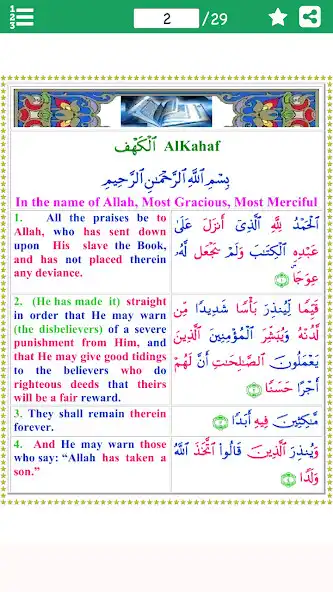 1
2
3
2 /29
الْكَهْفِ AlKahaf
بِسْمِ اللَّهِ الرَّحْمَٰنِ الرَّحِيمِ
In the name of Allah, Most Gracious, Most Merciful
1. All the praises be to
Allah, who has sent down
upon His slave the Book,
and has not placed therein
any deviance.
الْحَمْدُ لِلَّهِ الَّذِي أَنزَلَ عَلَىٰ
عَبْدِهِ الْكِتَابَ وَلَمْ يَجْعَل لَّهُ
عِوَجًا ۜ ١
2. (He has made it) straight
in order that He may warn
(the disbelievers) of a severe
punishment from Him, and
that He may give good tidings
to the believers who do
righteous deeds that theirs
will be a fair reward.
قَيِّمًا لِّيُنذِرَ بَأْسًا شَدِيدًا مِّن
لَّدُنْهُ وَيُبَشِّرَ الْمُؤْمِنِينَ الَّذِينَ
يَعْمَلُونَ الصَّالِحَاتِ أَنَّ لَهُمْ
أَجْرًا حَسَنًا ٢
3. They shall remain therein
forever.
مَّاكِثِينَ فِيهِ أَبَدًا ٣
4. And He may warn those
who say: “Allah has taken a
son.”
وَيُنذِرَ الَّذِينَ قَالُوا اتَّخَذَ اللَّهُ
وَلَدًا ٤